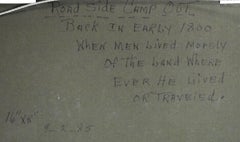 ROAD SIDE CAMP OUT
BACK IN EARLY 1800
WHEN MEN LIVED MORELY
OF THE LAND WHERE
EVER HE LIVED
OR TRAVELED.
16"X8"
2-2-85